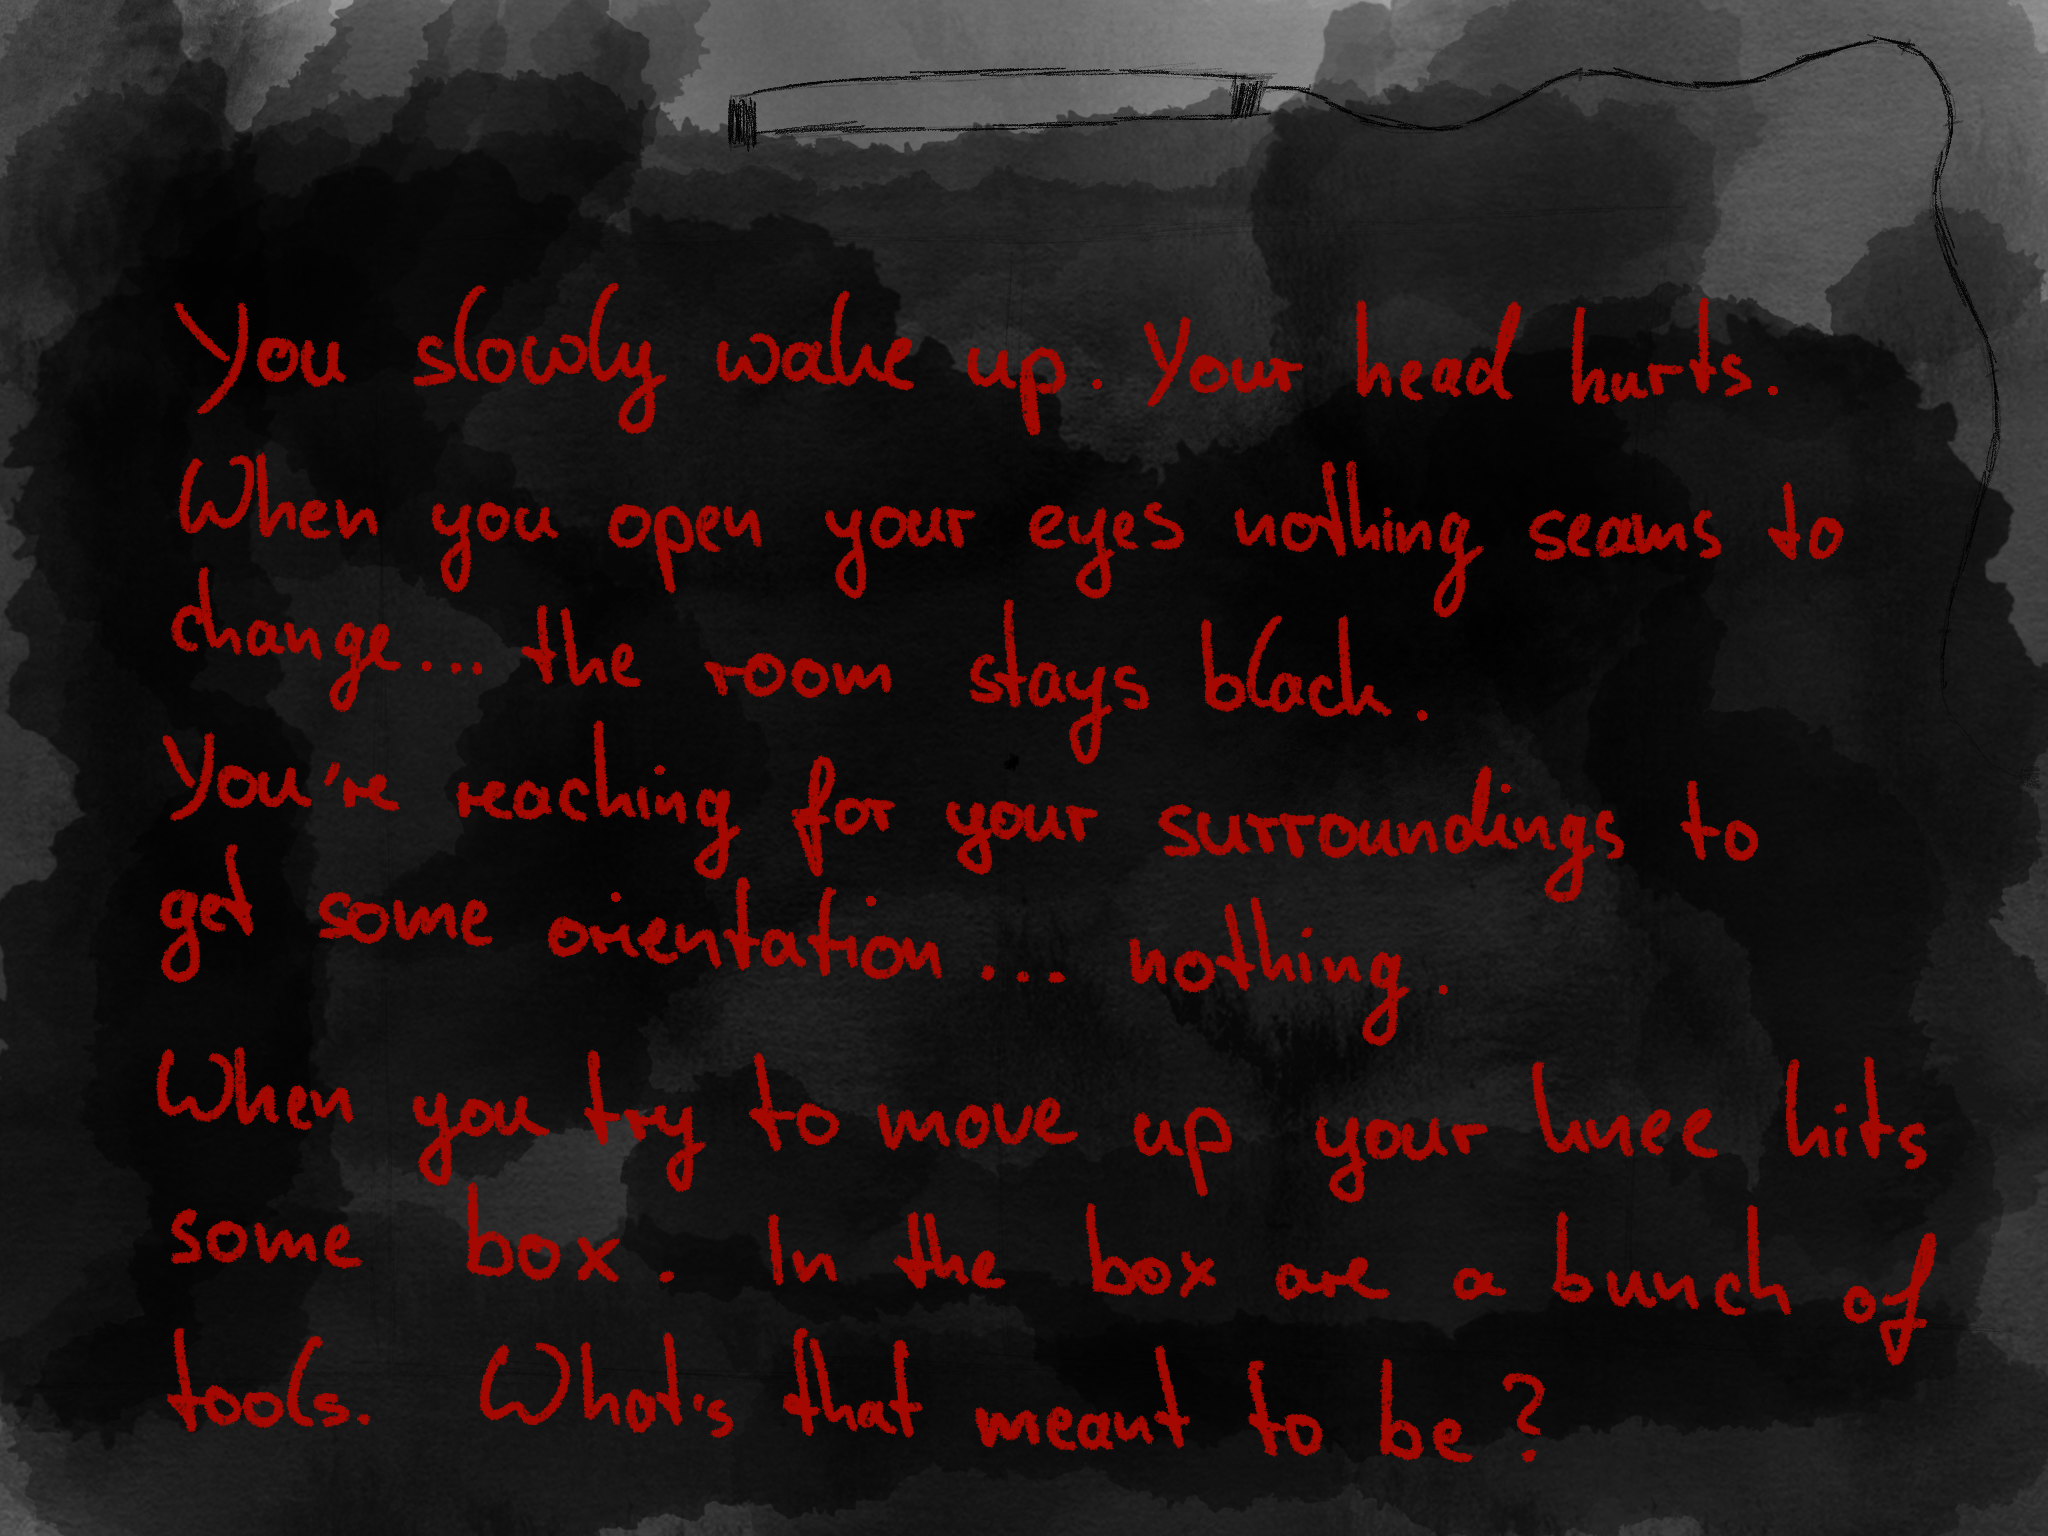 You slowly wake up. Your head hurts.
When you open your eyes nothing seams to
change... the room stays black.
You're reaching for your surroundings to
get some orientation... nothing.
When you try to move up your knee hits
some box. In the box are a bunch of
tools. What's that meant to be?